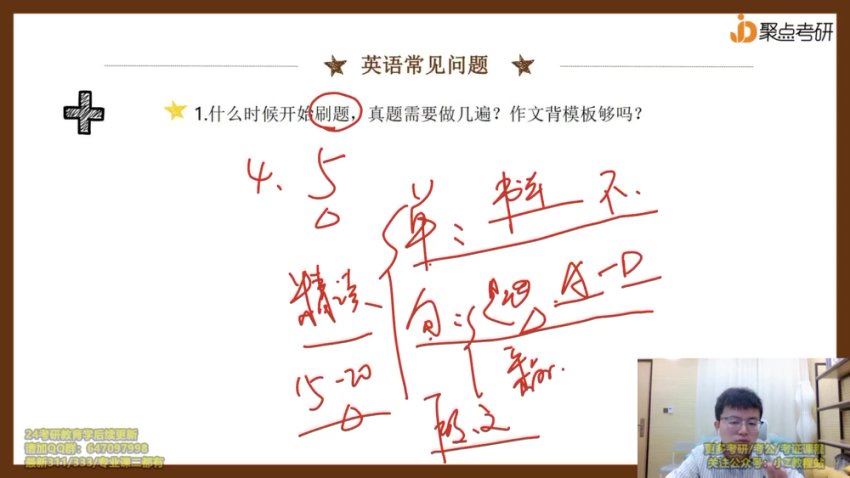 聚点考研
英语常见问题
1.什么时候开始刷题，真题需要做几遍？作文背模板够吗？
4、5
单： 不.
精读
句： 题 A-D
15-20
24考研教育学后续更新
请加QQ群：647097998
最新311/333/专业课二都有
更多考研/考公/考证课程
关注公众号：小Z教程站